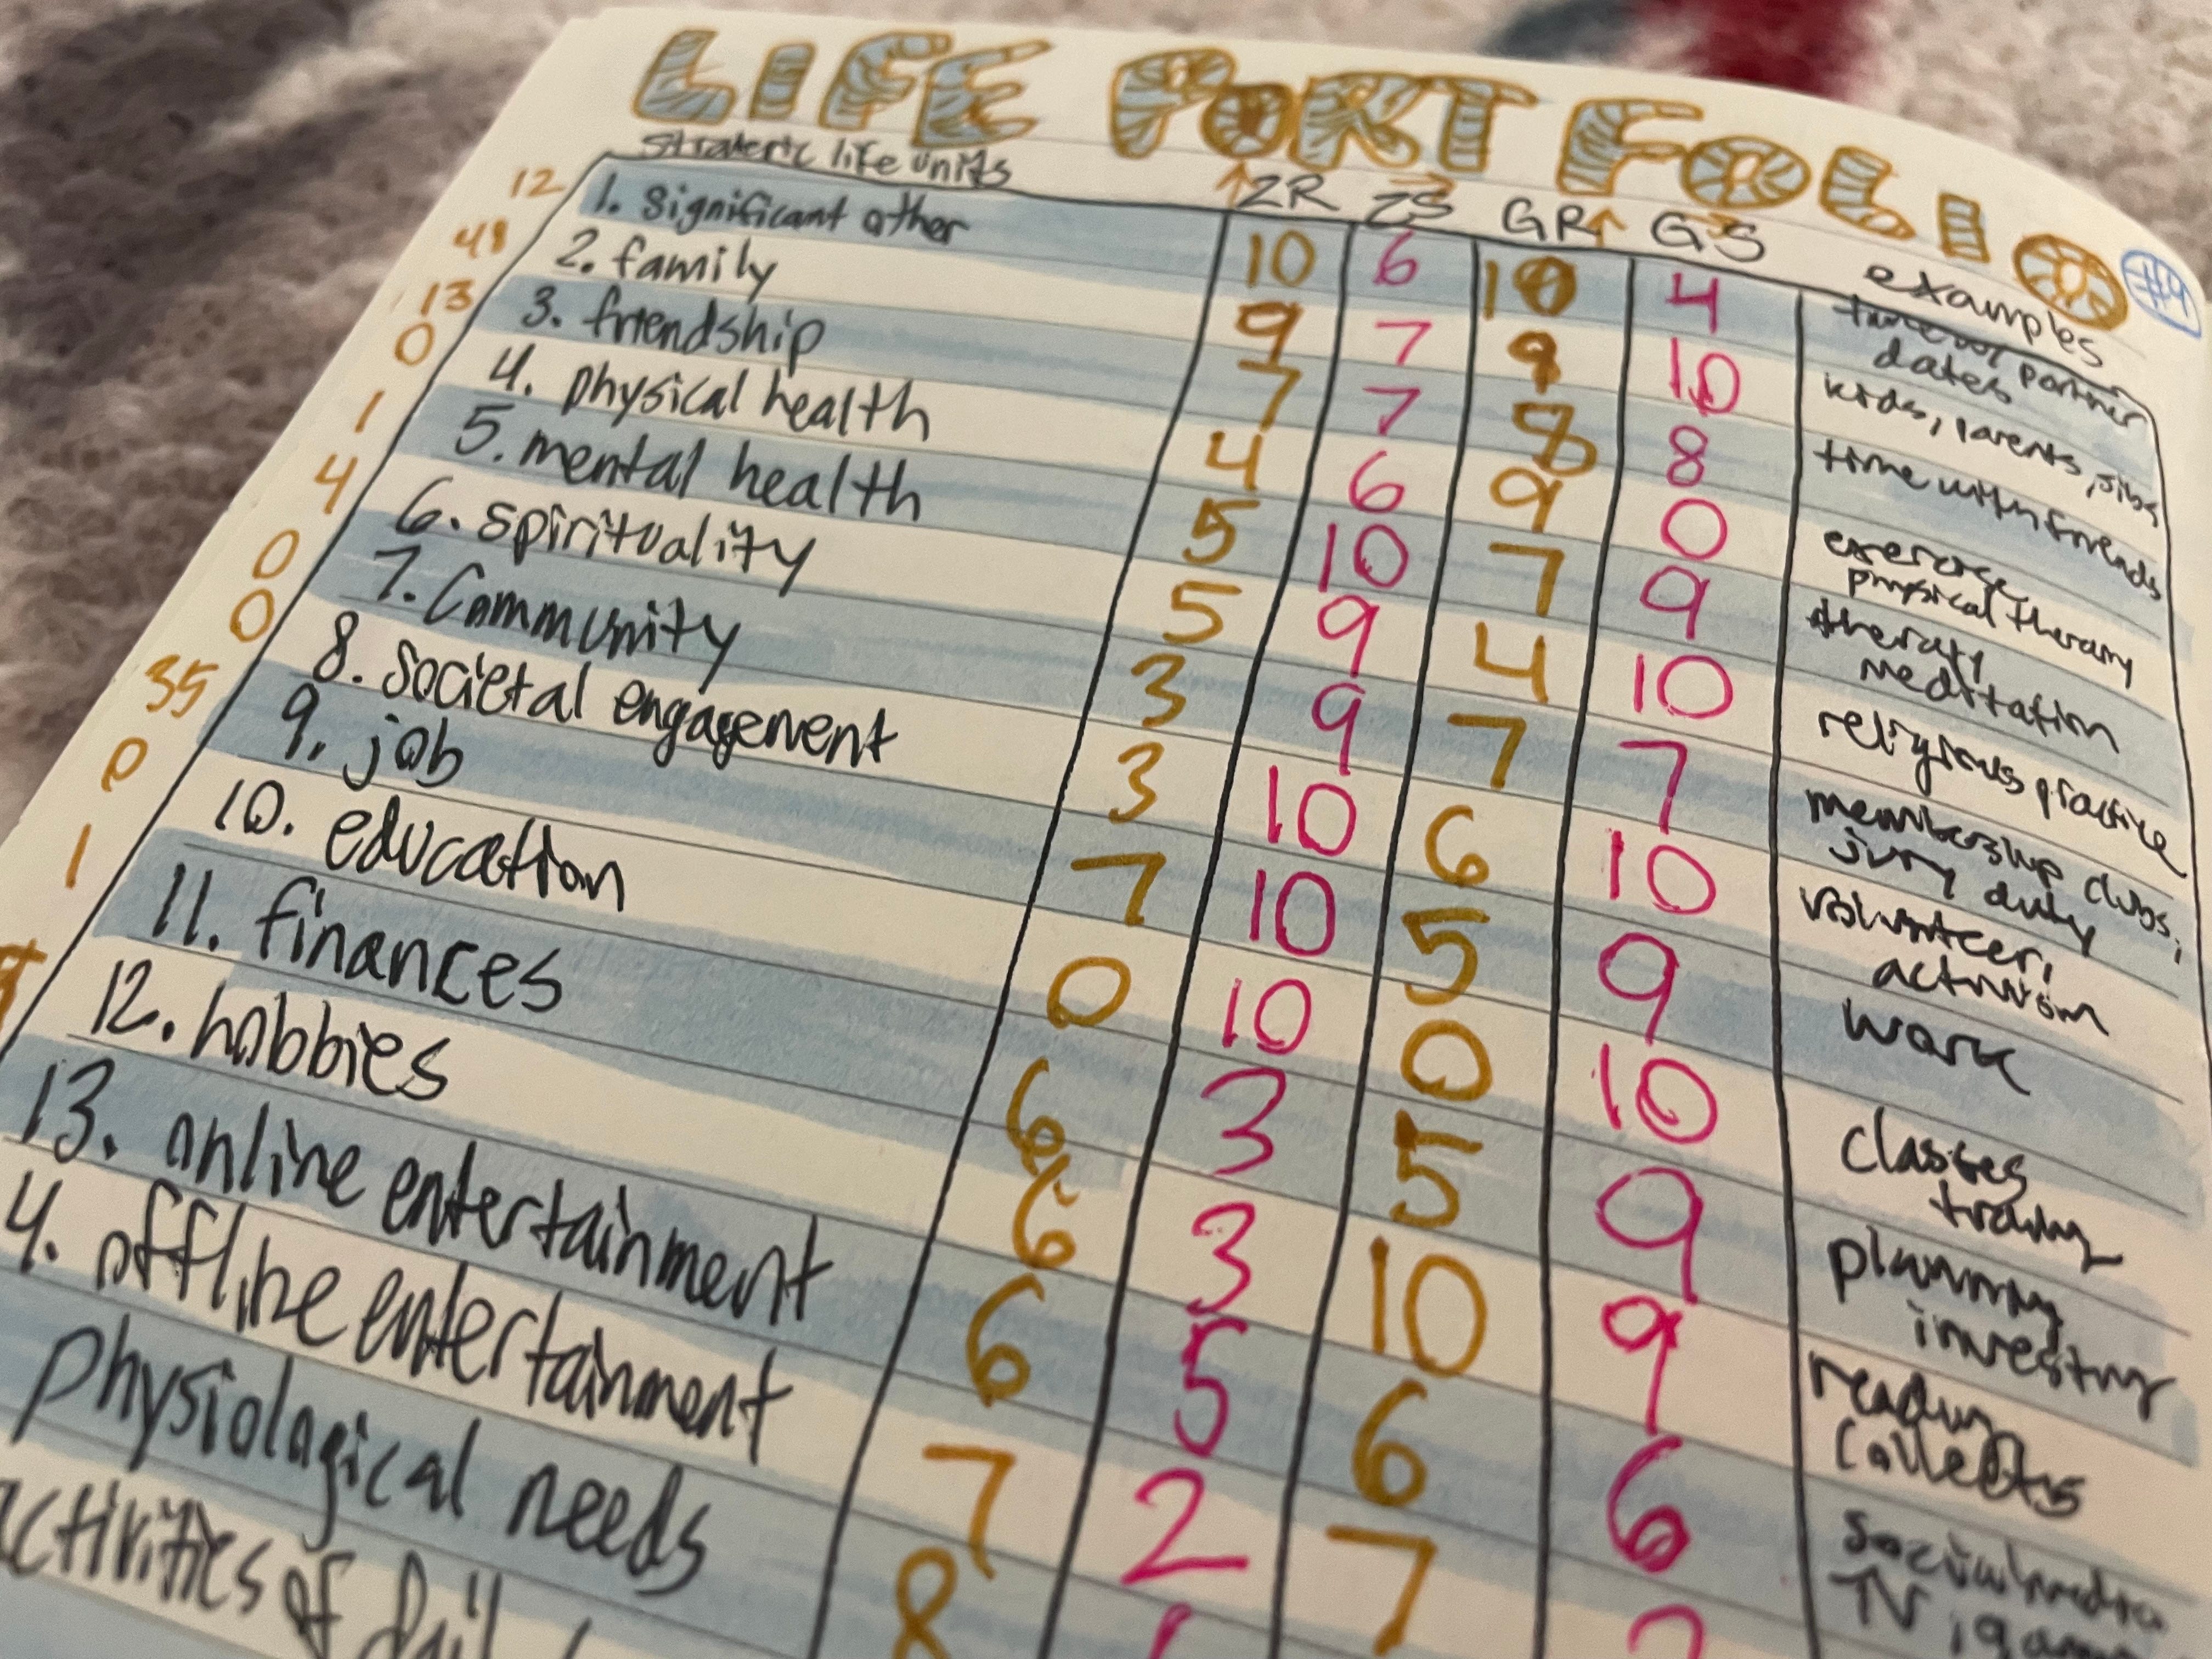 LIFE PORTFOLIO
#9
Strategic life units ZR ZS GR GS examples
12 1. Significant other 10 6 10 4 partner
dates
48 2. family 9 7 9 10 kids, parents, sibs
13 3. friendship 7 7 8 8 time with friends
0 4. physical health 4 6 9 0 exercise
physical therapy
1 5. mental health 5 10 7 9 therapy
meditation
4 6. spirituality 5 9 4 10 religious practice
0 7. Community 3 9 7 7 membership clubs,
jury duty
0 8. societal engagement 3 10 6 10 volunteer,
activism
35 9. job 7 10 5 9 work
0 10. education 0 10 0 10 classes
1 11. finances 6 3 5 9 planning
investing
12. hobbies 6 3 10 9 reading
13. online entertainment 6 5 6 6 social media
TV
4. offline entertainment 7 2 7
physiological needs 8
activities of